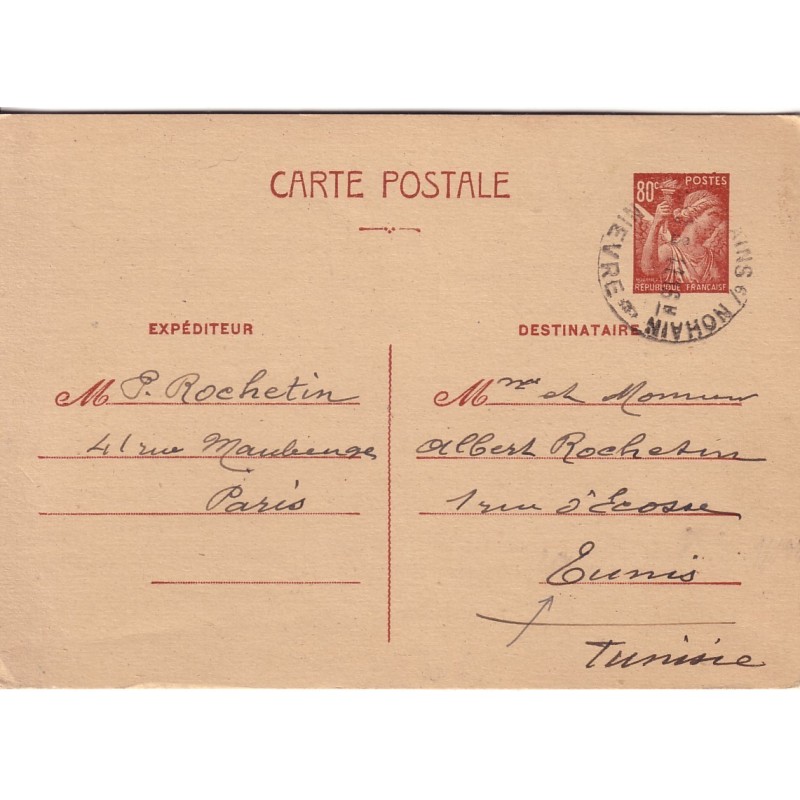 CARTE POSTALE
80c POSTES
RÉPUBLIQUE FRANÇAISE
AINS S/ NOHAIN
NIEVRE
EXPÉDITEUR
M P. Rochetin
41 rue Maubeuge
Paris
DESTINATAIRE
Mme et Monsieur
Albert Rochetin
1 rue d'Ecosse
Tunis
Tunisie